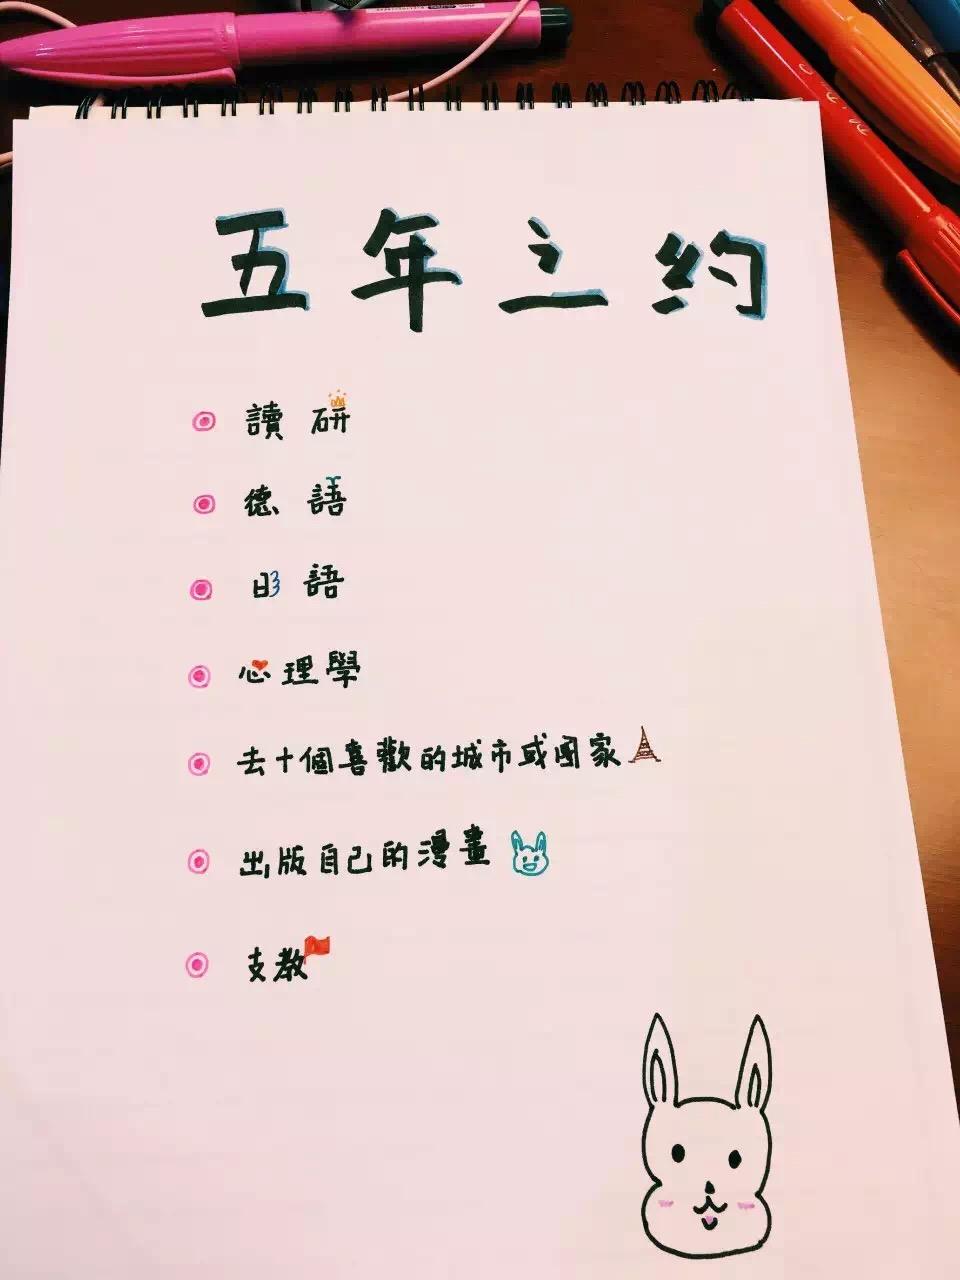 五年之约
讀研
德語
日語
心理學
去十個喜歡的城市或國家
出版自己的漫畫
支教